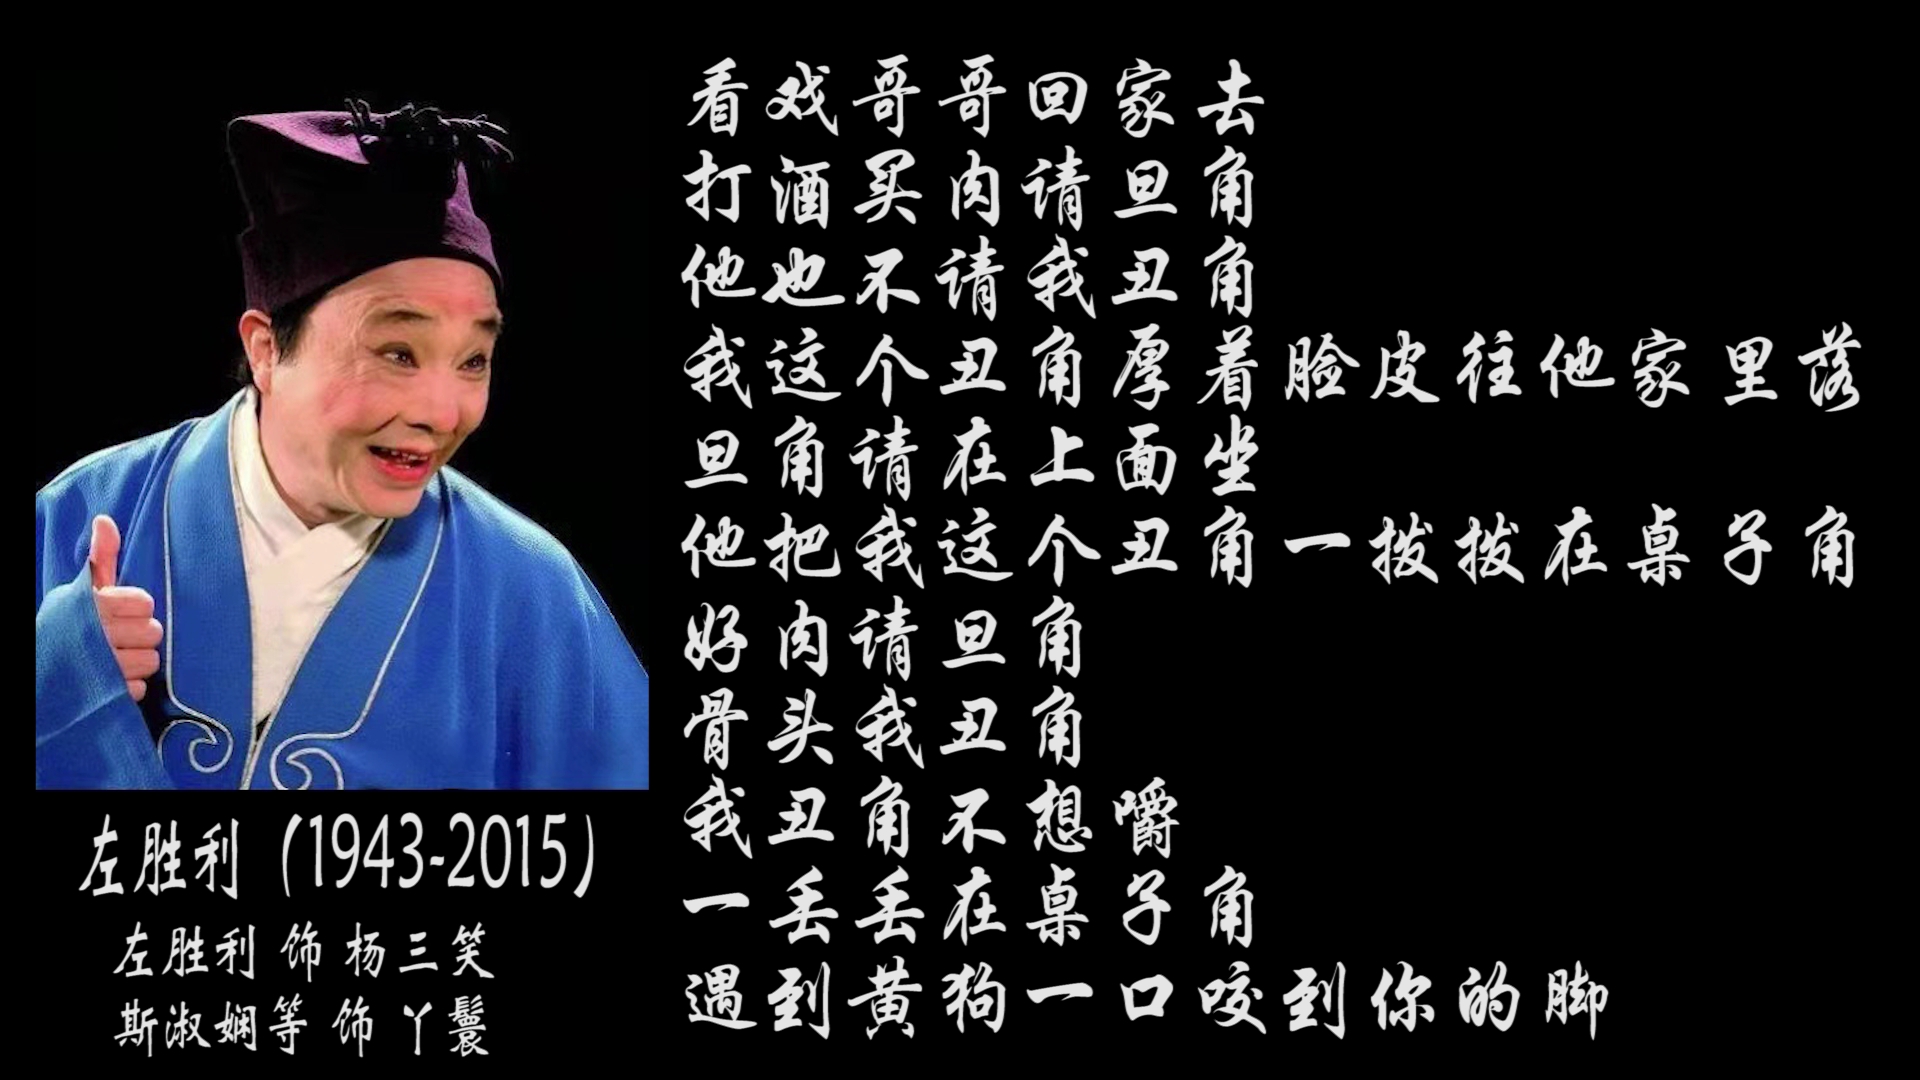 看戏哥哥回家去
打酒买肉请旦角
他也不请我丑角
我这个丑角厚着脸皮往他家里落
旦角请在上面坐
他把我这个丑角一拨拨在桌子角
好肉请旦角
骨头我丑角
我丑角不想嚼
一丢丢在桌子角
遇到黄狗一口咬到你的脚
左胜利（1943-2015）
左胜利 饰 杨三笑
斯淑娴等 饰 丫鬟